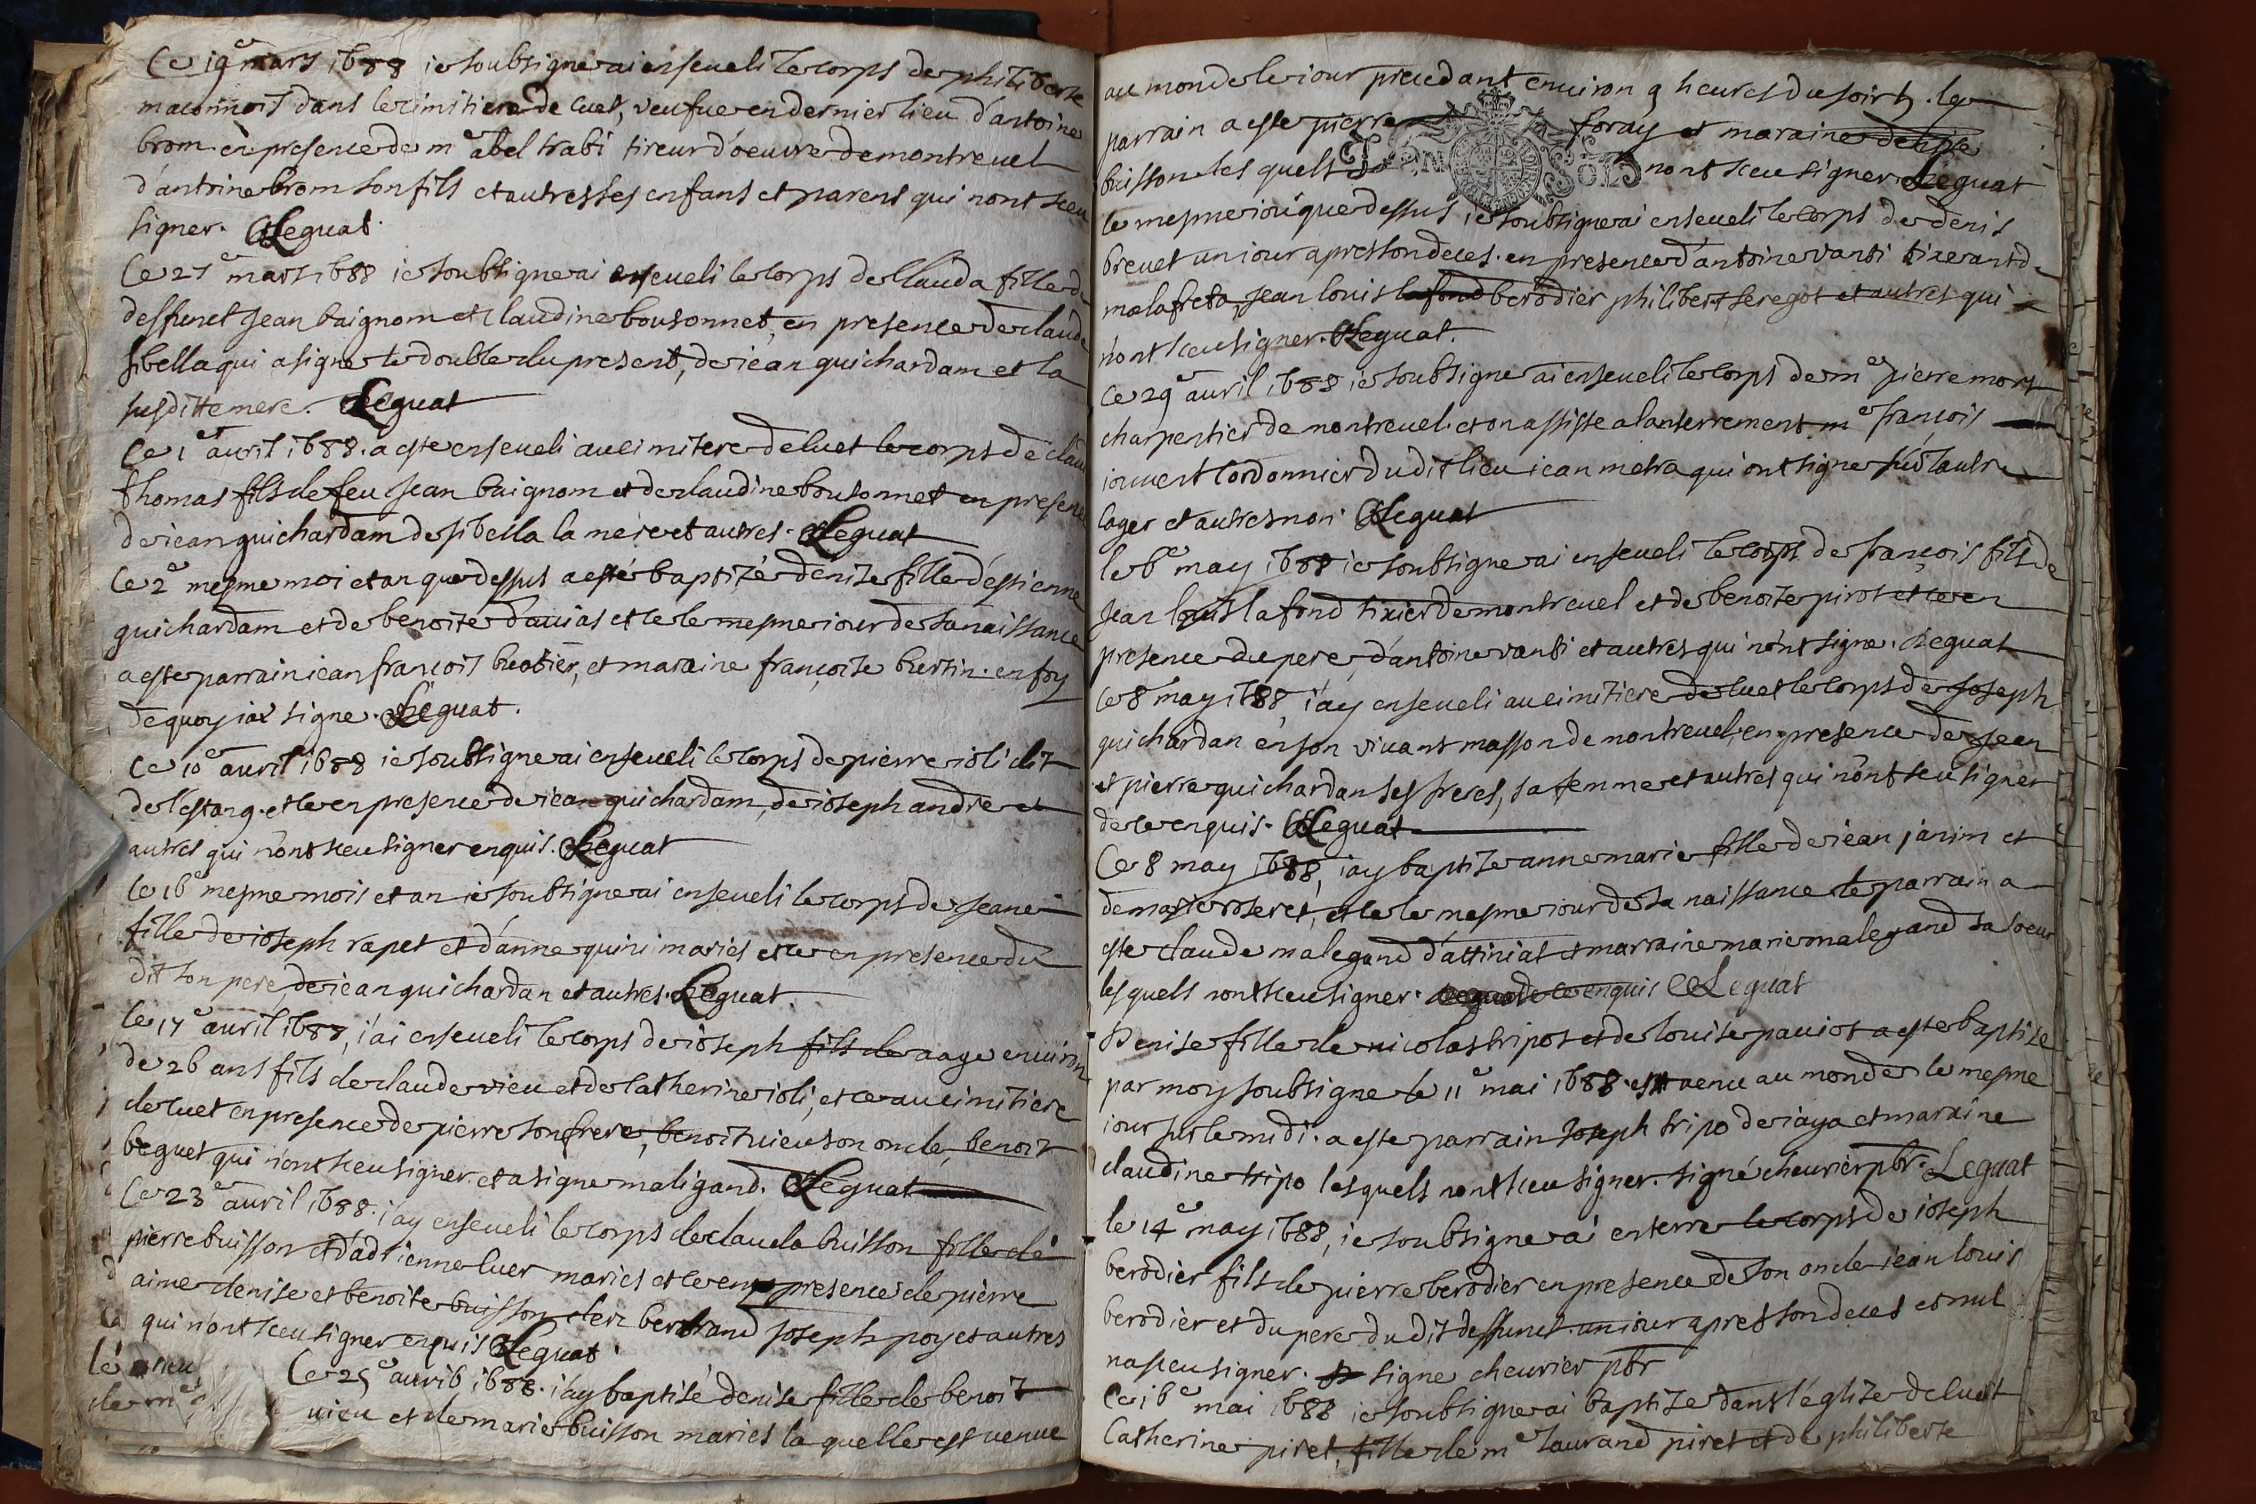 Ce 19e mars 1688 ie soubsigne ai enseueli le corps de philiberte
maconnois dans le cimitiere de cuet, veufue en dernier lieu d'antoine
brom en presence de me abel trabi tireur d'oeuvre de montreuel
d'antoine brom son fils et autres ses enfans et parens qui nont sceu
signer. Leguat
Ce 27e mars 1688 ie soubsigne ai enseueli le corps de Clauda fille de
deffunct Jean baignom et Claudine bousonnet, en presence de claude
sibella qui a signe le double du present, de iean guichardam et la
susditte mere. Leguat
Ce 1er auril 1688. a este enseueli au cimitere de cuet le corps de clau
thomas fils de feu Jean baignom et de claudine bousonnet en presence
de iean guichardam de sibella la mere et autres. Leguat
Ce 2e mesme moi et an que dessus a esté baptizé denize fille d'estienne
guichardam et de benoite dauias et ce le mesme iour de sa naissance
a este parrain iean françois buatier, et maraine françoise bertin. en foy
de quoy iai signe. Leguat.
Ce 10e auril 1688 ie soubsigne ai enseueli le corps de pierre ioli dit
de l'estang. et ce en presence de iean guichardam, de ioseph andre et
autres qui n'ont sceu signer enquis. Leguat
Le 16e mesme mois et an ie soubsigne ai enseueli le corps de Jeane
fille de ioseph rapet et d'anne guiri maries et ce en presence du
dit son pere, de iean guichardan et autres. Leguat
Le 17e auril 1688, i'ai enseueli le corps de ioseph fils de aage enuiron
de 26 ans fils de claude vieu et de Catherine ioli, et ce au cimitiere
de cuet en presence de pierre son frere, benoit vieu son oncle, benoit
beguet qui n'ont sceu signer. et a signe maligand. Leguat
Ce 23e auril 1688. i'ay enseueli le corps de clauda buisson fille de
pierre buisson et d'adrienne luer maries et ce en presence de pierre
aime denise et benoite buisson clere bertrand Joseph poy et autres
qui n'ont sceu signer enquis Leguat
Ce 25e auril 1688. i'ay baptisé denise fille de benoit
uieu et de marie buisson maries la quelle est uenue
au monde le iour precedant enuiron 9 heures du soir le
parrain a este pierre foray et maraine denise
buisson les quels nont sceu signer Leguat
le mesme iour que dessus ie soubsigne ai enseueli le corps de denis
breuet un iour apres son deces. en presence d'antoine vanti tixerant de
malafreta, Jean louis lafond berodier philibert seregot et autres qui
n'ont sceu signer. Leguat.
Ce 29e auril 1688 ie soubsigne ai enseueli le corps de me pierre mort
charpentier de montreuel. et on assiste a lanterrement me françois
iouuent Cordonnier du dit lieu iean metra qui ont signe
lager et autres non Leguat
le 6e may 1688 ie soubsigne ai enseueli le corps de françois fils de
Jean louis lafond tixier de montreuel et de benoite pirot et ce en
presence du pere, d'antoine vanti et autres qui n'ont signe. Leguat
Ce 8 may 1688, i'ay enseueli au cimitiere de cuet le corps de Joseph
guichardan en son viuant masson de montreuel, en presence de Jean
et pierre guichardan ses freres, sa femme et autres qui n'ont sceu signer
de ce enquis. Leguat
Ce 8 may 1688, iay baptize anne marie fille de iean janin et
de marie roseret, et ce le mesme iour de sa naissance le parrain a
este claude malegand d'attiniat et marraine marie malegand sa soeur
lesquels nont sceu signer. de ce enquis Leguat
Denise fille de nicolas tripot et de louise pauiot a este baptize
par moy soubsigne le 11e mai 1688. est uenu au monde le mesme
iour sur le midi. a este parrain Joseph tripo de iaya et maraine
claudine tripo lesquels nont sceu signer. signé cheurier pbr. Leguat
le 14e may 1688, ie soubsigne ai enterre le corps de ioseph
berodier fils de pierre berodier en presence de son oncle iean louis
berodier et du pere du dit deffunct un iour apres son deces et nul
na sceu signer. signe cheurier pbr
Ce 16e mai 1688 ie soubsigne ai baptize dans l'eglize de cuet
Catherine piret, fille de me laurand piret et de philiberte